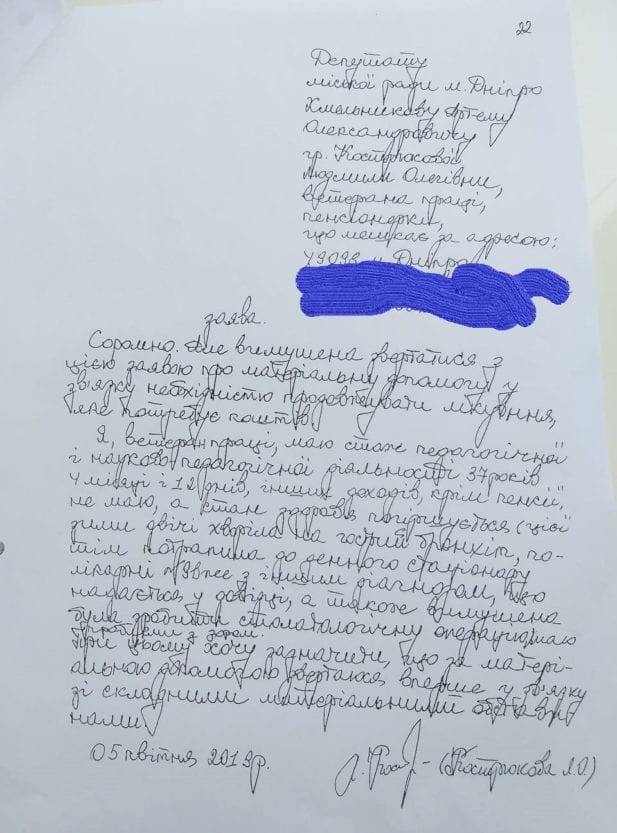 22
Депутату
міської ради м. Дніпро
Хмельникову Артему
Олександровичу
гр. Кострюкової
Людмили Олегівни,
ветерана праці,
пенсіонерки,
що мешкає за адресою:
м. Дніпро
заява.
Соромно. Але вимушена звертатися з
цією заявою про матеріальну допомогу у
зв'язку необхідністю продовжувати лікування,
яке потребує коштів.
Я, ветеран праці, маю стаж педагогічної
і науково-педагогічної діяльності 37 років
4 місяці і 12 днів, інших доходів, крім пенсії,
не маю, а стан здоров'я погіршується (цієї
зими двічі хворіла на гострий бронхіт, по-
тім потрапила до денного стаціонару
лікарні №9 з іншим діагнозом, що
надається у довідці, а також вимушена
була зробити стоматологічну операцію, маю
проблеми з зором.
При цьому хочу зазначити, що за матері-
альною допомогою звертаюся вперше у зв'язку
зі складними матеріальними обстави-
нами
05 квітня 2019р.
(Кострюкова Л.О.)